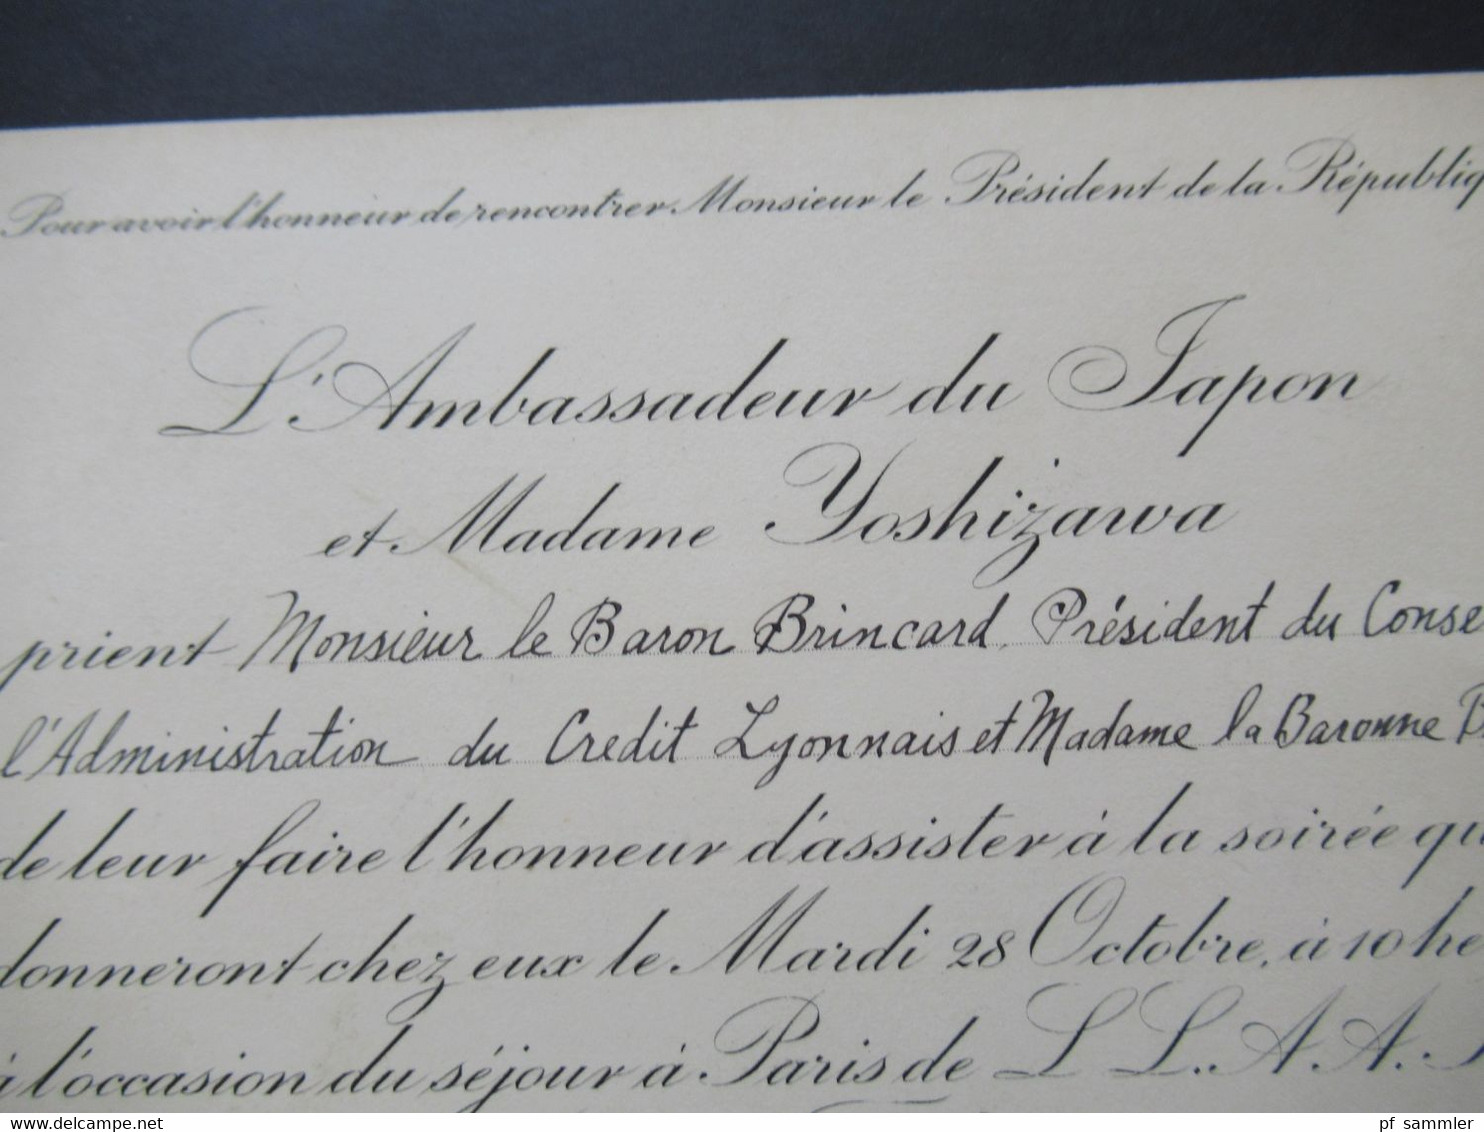 Pour avoir l'honneur de rencontrer Monsieur le Président de la Républiq
L'Ambassadeur du Japon
et Madame Yoshizawa
prient Monsieur le Baron Brincard, Président du Conse
l'Administration du Credit Lyonnais et Madame la Baronne B
de leur faire l'honneur d'assister à la soirée qu
donneront chez eux le Mardi 28 Octobre, à 10 he
à l'occasion du séjour à Paris de LL. AA.
delcampe.net
pf_sammler